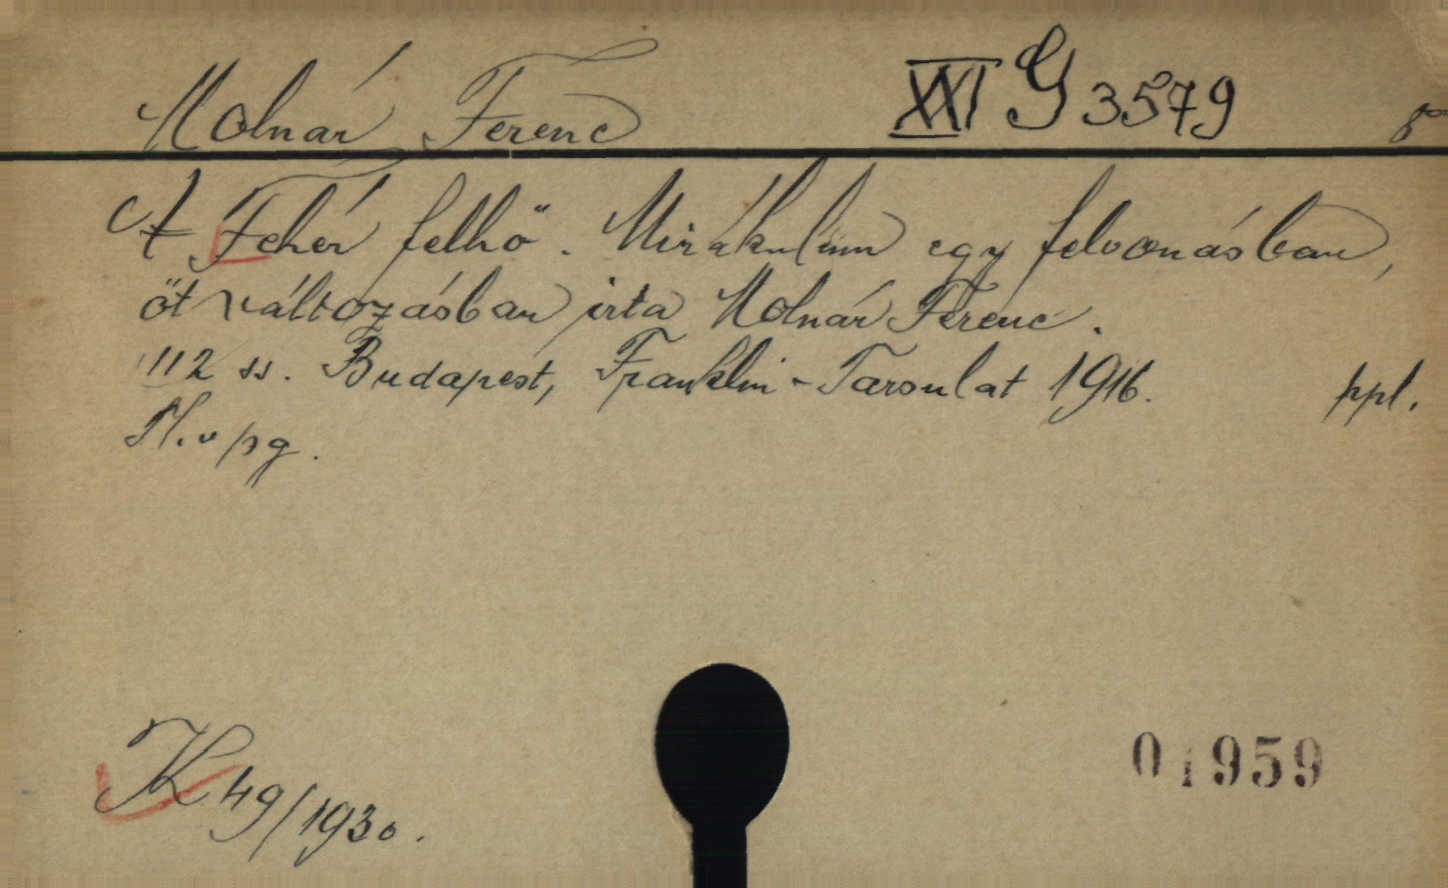 Molnár Ferenc XXI G 3579 8°
A Fehér felhő. Mirákulum egy felvonásban,
öt változásban irta Molnár Ferenc.
112 ss. Budapest, Franklin-Tarsulat 1916. ppl.
M. v pg.
K 49/1930.
01959